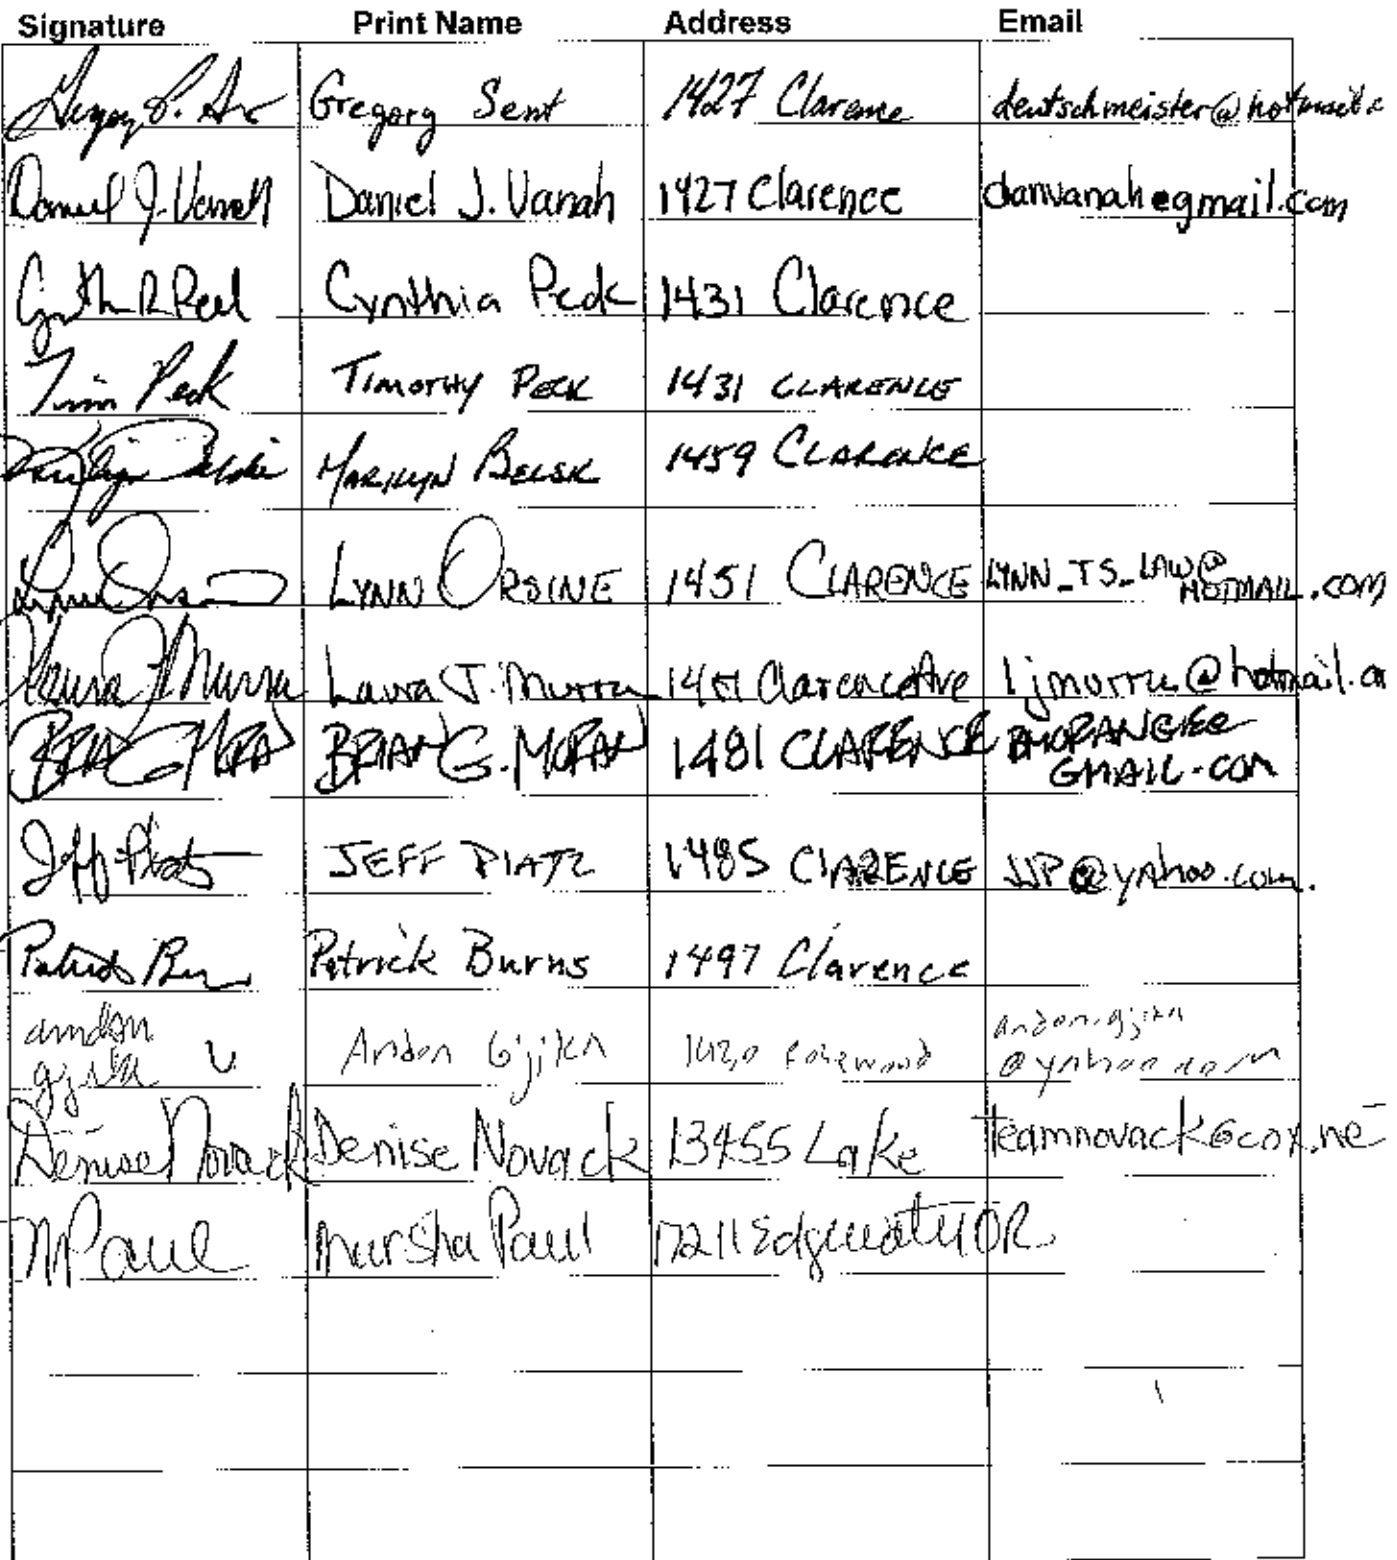 Signature Print Name Address Email
Gregory Sent 1427 Clarence deutschmeister@hotmail.c
Daniel J. Vanah Daniel J. Vanah 1427 Clarence danvanah@gmail.com
Cynthia R Peck Cynthia Peck 1431 Clarence
Tim Peck Timothy Peck 1431 CLARENCE
MARILYN 1459 CLARENCE
LYNN ORSINE 1451 CLARENCE LYNN_TS_LAW@
HOTMAIL.COM
Laura J Murru Laura J. Murru Clarence Ave ljmurru@hotmail.co
BRIAN G MORAN BRIAN G. MORAN 1481 CLARENCE BMORANGE@
GMAIL.COM
Jeff Piatz JEFF PIATZ 1485 CLARENCE JJP@yahoo.com.
Patrick Burns 1497 Clarence
andon andon.gjika
gjika Andon Gjika @yahoo.com
Denise Novack Denise Novack 13455 Lake teamnovack@cox.ne
M Paul Marsha Paul 17211 Edgewater DR.